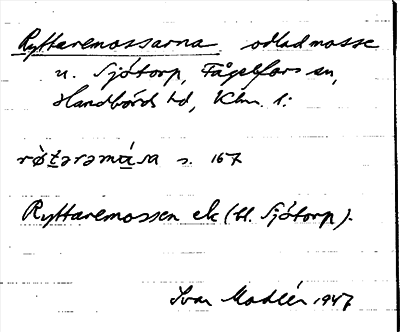 Ryttaremossarna odlad mosse
u. Sjötorp, Fågelfors sn,
Handbörds hd, Klm. l:
røtarəmåsa s. 167
Ryttaremossen ek (tl. Sjötorp).
Ivar Modéer 1947